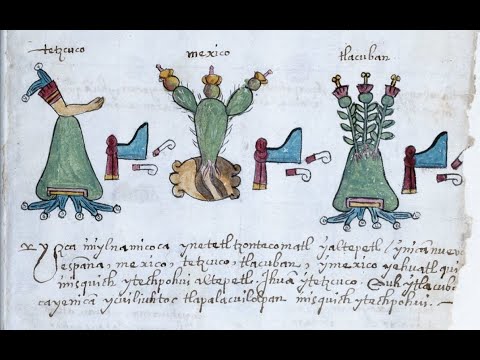 tetzcuco mexico tlacuban
Yzca ynylnamicoca ynetetl tzontecomatl yaltepetl ynican nuev
españa, mexico, tetzcuco, tlacuban, ymexico yehuatl qui
misquich ytechpohui altepetl. Ihuā ytetzcuco. Auh ytlacub
cayenica ycuiliuhtoc tlapalacuilolpan misquich ytechpohui.